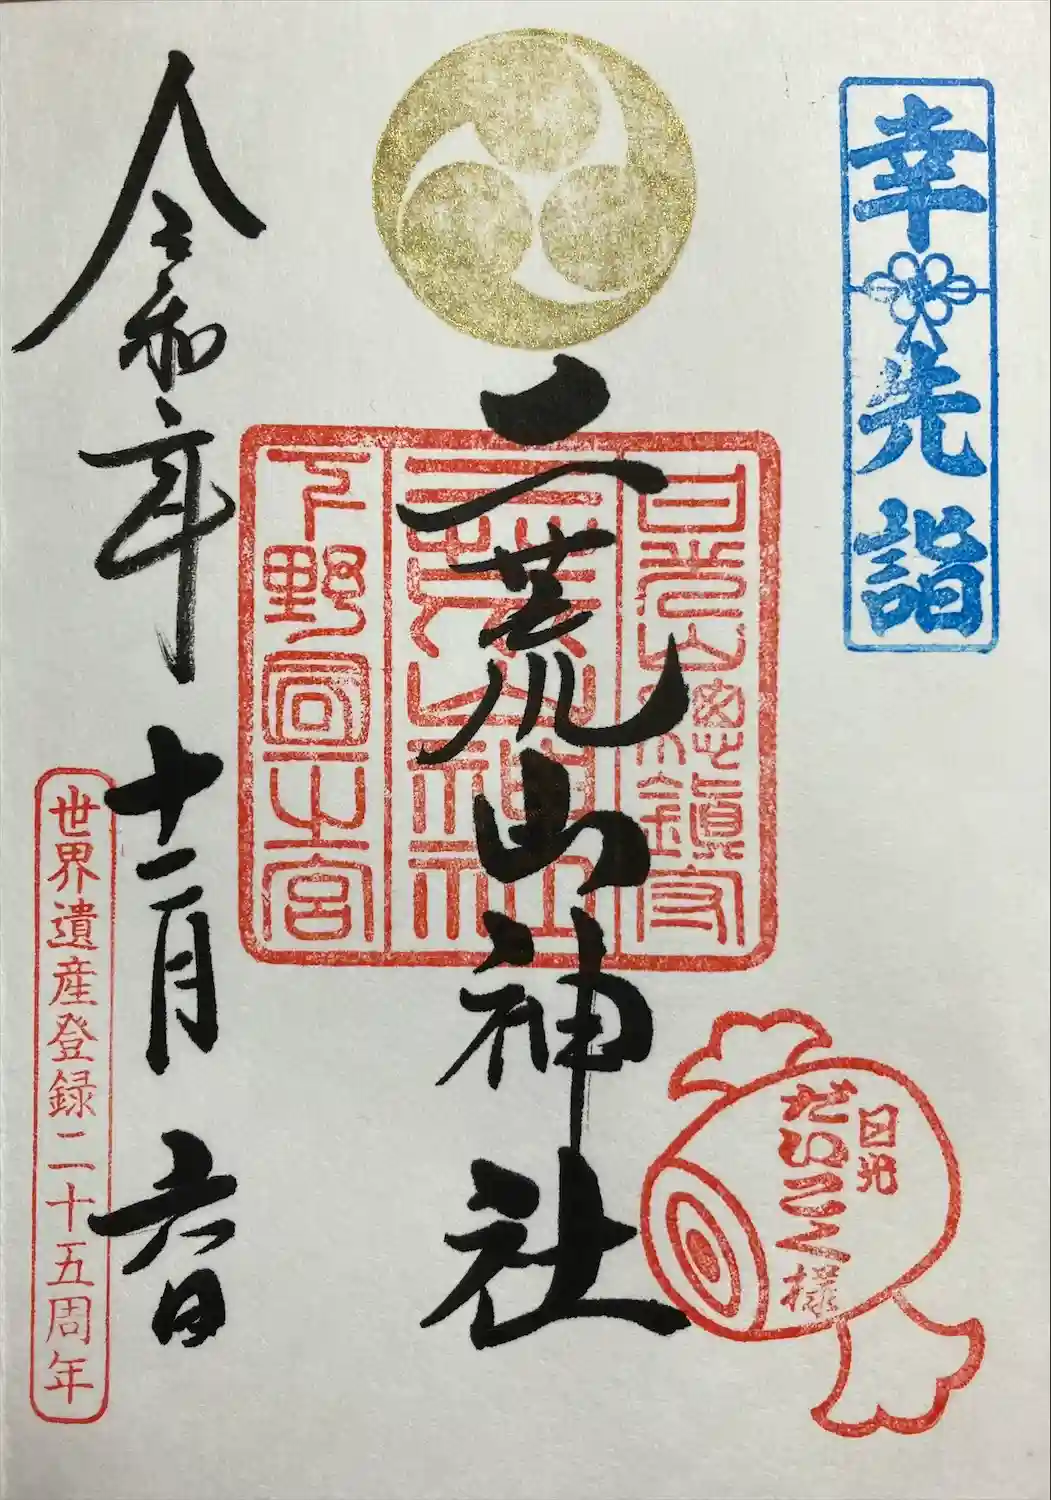 幸先詣
日光山總鎮守
二荒山神社
二荒山神社
下野国一之宮
令和六年十一月六日
世界遺産登録二十五周年
日光
だいこく様